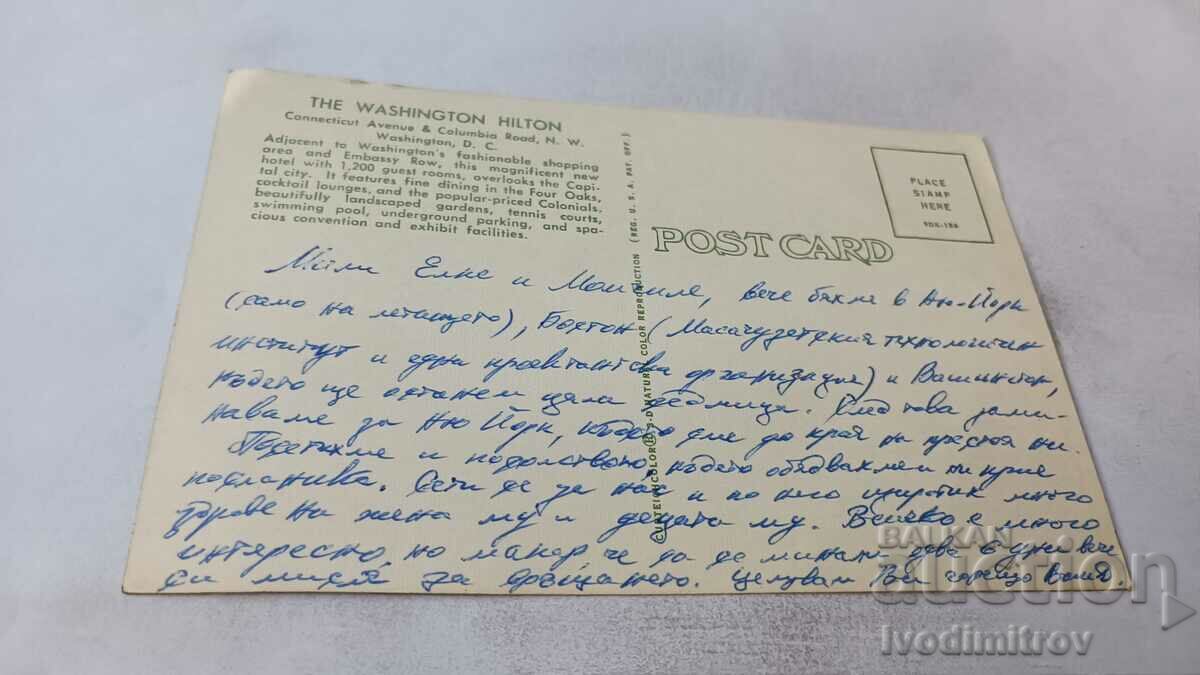 THE WASHINGTON HILTON
Connecticut Avenue & Columbia Road, N. W.
Washington, D. C.
Adjacent to Washington's fashionable shopping
area and Embassy Row, this magnificent new
hotel with 1,200 guest rooms, overlooks the Capi-
tal city. It features fine dining in the Four Oaks,
cocktail lounges, and the popular-priced Colonials,
beautifully landscaped gardens, tennis courts,
swimming pool, underground parking, and spa-
cious convention and exhibit facilities.
CURTEICHCOLOR® 3-D NATURAL COLOR REPRODUCTION (REG. U. S. A. PAT. OFF.)
POST CARD
PLACE
STAMP
HERE
Мили Елке и вече бяхме в Ню-Йорк
(само на летището), Бостон (Масачузетския технологичен
институт и една организация) и Вашингтон,
където ще останем цяла седмица. След това зами-
наваме за Ню Йорк, където сме до края на престоя ни.
Посетихме и посолството, където обядвахме и ни прие
посланика. за нас и по него изпратих много
здраве на жена му и децата му. Всичко е много
интересно, но макар че да са минали два дни вече
си мисля за връщането. Целувам Ви горещо
BALKAN
auction
Ivodimitrov